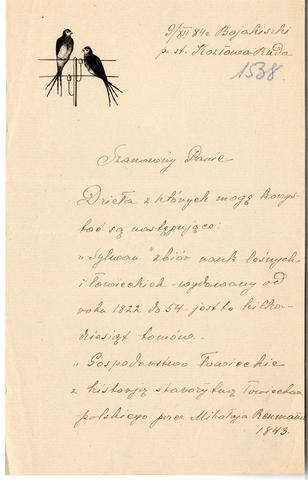 9/XII 84 r Bojakiszki
p. st. Kozłowa-Ruda
1538.
Szanowny Panie
Dzieła z których mogę korzys-
tać są następujące:
"Sylwan" zbiór nauk leśnych
i łowieckich - wydawany od
roku 1822 do 54 jest to kilka-
dziesiąt tomów.
"Gospodarstwo Łowieckie
z historją starożytną Łowiectwa
polskiego przez Mikołaja Reumanna
1845.